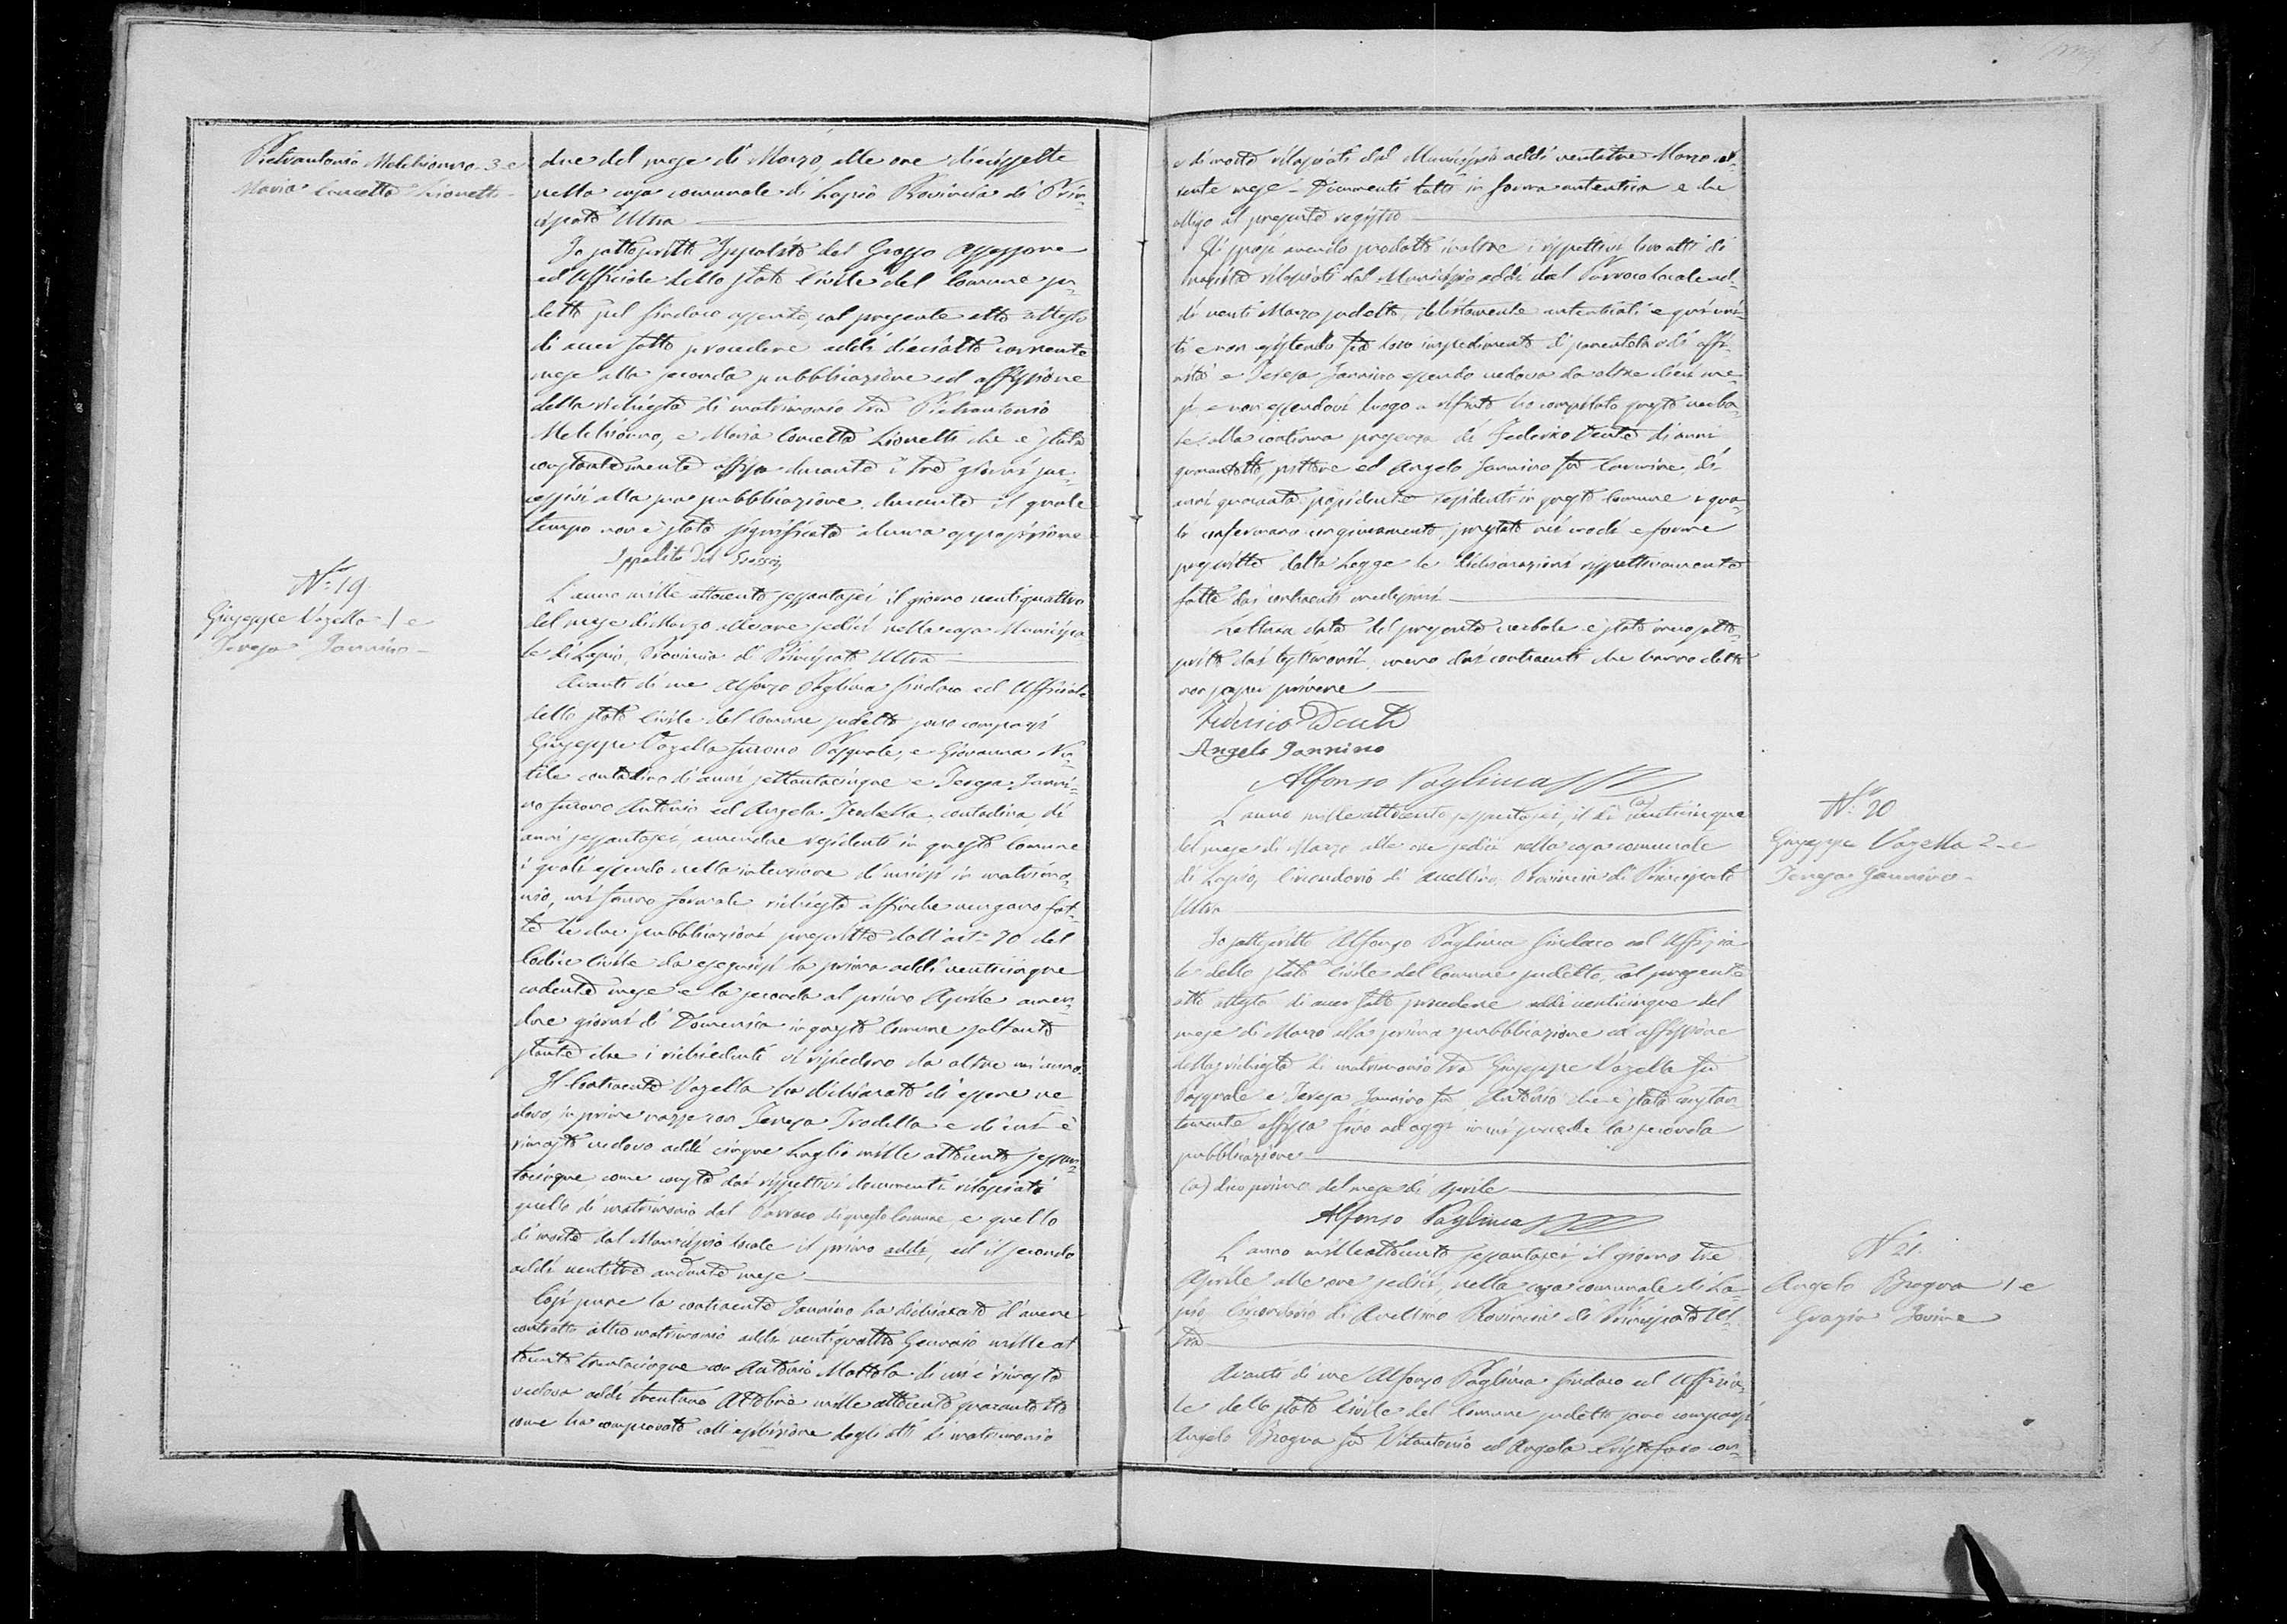 Pietrantonio Melchionno 3 e
Maria Concetta Lionetti
due del mese di Marzo, alle ore diecissette
nella casa comunale di Lapio Provincia di Prin-
cipato Ultra
Io sottoscritto Ippolito del Grosso Assessore
ed Uffiziale dello stato Civile del Comune su-
detto pel Sindaco assente, col presente atto attesto
di aver fatto procedere addì dieciotto corrente
mese alla seconda pubblicazione ed affissione
della richiesta di matrimonio tra Pietrantonio
Melchionno, e Maria Concetta Lionetti che è stata
costantemente affissa durante i tre giorni suc-
cessivi alla sua pubblicazione, durante il quale
tempo non è stata significata alcuna opposizione
Ippolito Del Grosso
N.º 19
Giuseppe Vozella 1 e
Teresa Jannino
L'anno mille ottocento sessantasei il giorno ventiquattro
del mese di Marzo alle ore sedici nella casa Municipa-
le di Lapio, Provincia di Principato Ultra
Avanti di me Alfonso Pagliuca Sindaco ed Uffiziale
dello stato Civile del Comune sudetto sono comparsi
Giuseppe Vozella furono Pasquale, e Giovanna
contadino di anni settantacinque e Teresa Janni-
no furono Antonio ed Angela Trodella, contadina, di
anni sessantasei, amendue residenti in questo Comune
i quali essendo nella intenzione di unirsi in matrimo-
nio, mi fanno formale richiesta affinche vengano fat-
te le due pubblicazioni prescritte dall'art.º 70 del
Codice Civile da eseguirsi la prima addì venticinque
cadente mese e la seconda al primo Aprile amen-
due giorni di Domenica in questo Comune soltanto
stante che i richiedenti vi risiedono da oltre un anno.
Il Contraente Vozella ha dichiarato di essere ve
dovo, in prime nozze con Teresa Trodella e di cui è
rimasto vedovo addì cinque Luglio mille ottocento sessan-
tacinque, come costa dai rispettivi documenti rilasciati
quello di matrimonio dal Parroco di questo Comune, e quello
di morte dal Municipio locale il primo addì, ed il secondo
addì ventitre andante mese
Così pure la contraente Jannino ha dichiarato d'avere
contratto altro matrimonio addì ventiquattro Gennaio mille ot
tocento trentacinque con Antonio Mottola di cui è rimasta
vedova addì trentuno Ottobre mille ottocento quarantotto
come ha comprovato coll'esibizione degli atti di matrimonio
e di morte rilasciati dal Municipio addì ventitre Marzo cor-
rente mese - Documenti tutti in forma autentica e che
alligo al presente registro
Gli sposi avendo prodotto inoltre i rispettivi loro atti di
nascita rilasciati dal Municipio addì dal Parroco locale ad-
dì venti Marzo sudetto, debitamente autenticati e quì uni-
ti e non esistendo fra loro impedimento di parentela o di affi-
nità e Teresa Jannino essendo vedova da oltre dieci me-
si, e non essendovi luogo a rifiuto ho compilato questo verba-
le alla continua presenza di Federico Dente di anni
quarantotto, pittore ed Angelo Jannino fu Carmine di
anni quaranta possidente residenti in questo Comune i qua-
li confermano con giuramento prestato nei modi e forme
prescritte dalla Legge le dichiarazioni rispettivamente
fatte dai contraenti medesimi
Lettura data del presente verbale è stato meco sotto-
scritto dai testimonii, meno dai contraenti che hanno detto
non saper scrivere
Federico Dente
Angelo Jannino
Alfonso Pagliuca
N.º 20
Giuseppe Vozella 2 e
Teresa Jannino
L'anno mille ottocento sessantasei, il dì (a) venticinque
del mese di Marzo alle ore sedici nella casa comunale
di Lapio, Circondario di Avellino, Provincia di Principato
Ultra
Io sottoscritto Alfonso Pagliuca Sindaco ed Uffizia
le dello stato Civile del Comune sudetto, col presente
atto attesto di aver fatto procedere addì venticinque del
mese di Marzo alla prima pubblicazione ed affissione
della richiesta di matrimonio tra Giuseppe Vozella fu
Pasquale e Teresa Jannino fu Antonio che è stata costan-
temente affissa fino ad oggi in cui procede la seconda
pubblicazione
(a) dico primo del mese di Aprile
Alfonso Pagliuca
N.º 21.
Angelo Brogna 1 e
Grazia Iovine
L'anno mille ottocento sessantasei il giorno tre
Aprile alle ore sedici, nella casa comunale di La-
pio, Circondario di Avellino Provincia di Principato Ul-
tra
Avanti di me Alfonso Pagliuca Sindaco ed Uffizia-
le dello stato Civile del Comune sudetto sono comparsi
Angelo Brogna fu Vitantonio ed Angela Cristofaro con-